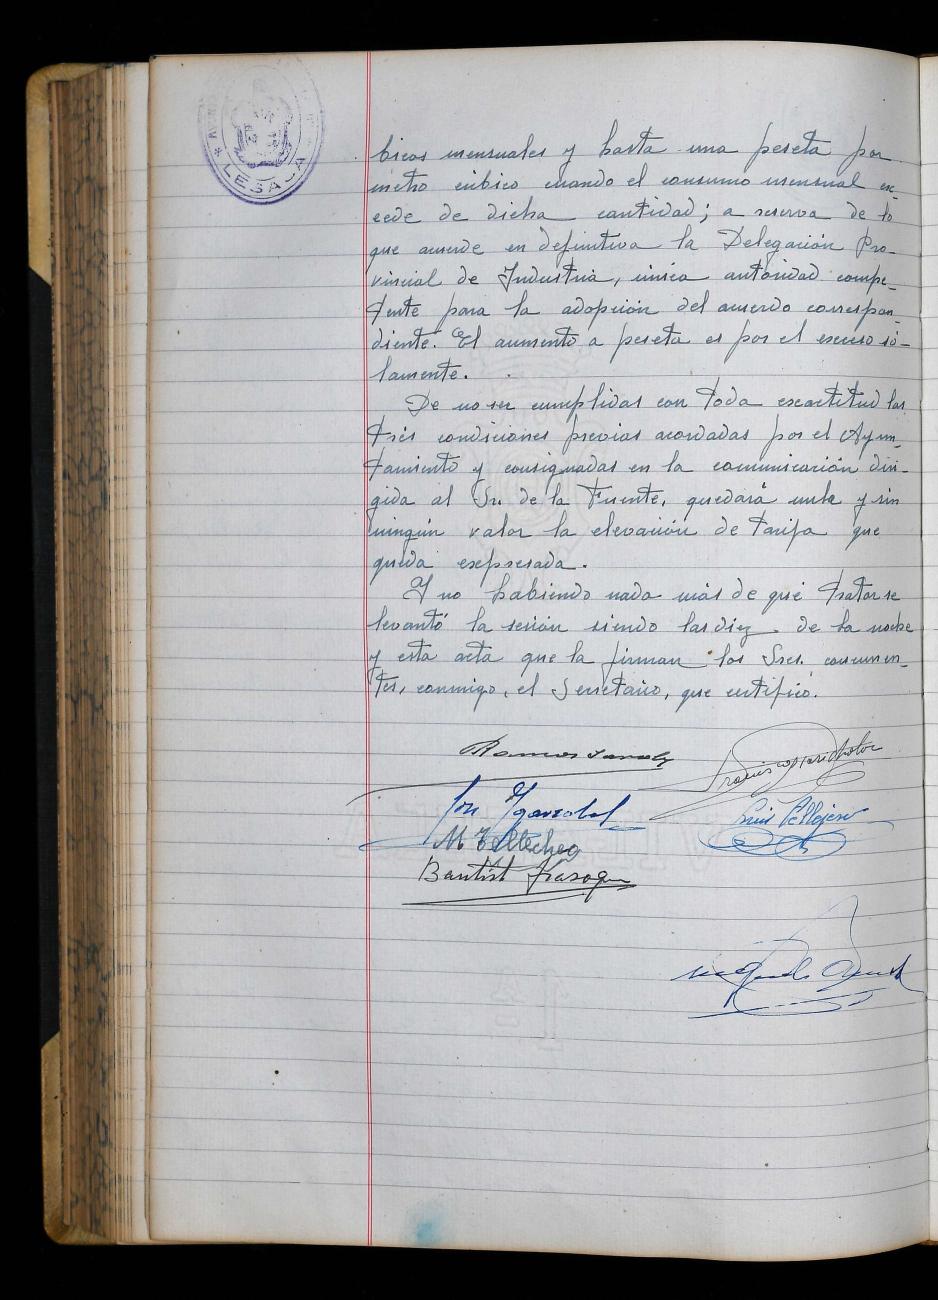 LESACA
bicos mensuales y hasta una peseta por
metro cúbico cuando el consumo mensual ex-
cede de dicha cantidad; a reserva de lo
que acuerde en definitiva la Delegación Pro-
vincial de Industria, única autoridad compe-
tente para la adopción del acuerdo correspon-
diente. El aumento a peseta es por el exceso só-
lamente.
De no ser cumplidas con toda exactitud las
trés condiciones previas acordadas por el Ayun-
tamiento y consignadas en la comunicación diri-
gida al Sr. de la Fuente, quedará nula y sin
ningún valor la elevación de tarifa que
queda expresada.
Y no habiendo nada más de qué tratar se
levantó la sesión siendo las diez de la noche
y esta acta que la firman los Sres. concurren-
tes, conmigo, el Secretario, que certifico.
M Tellechea
Luis Pellejero
Bautist